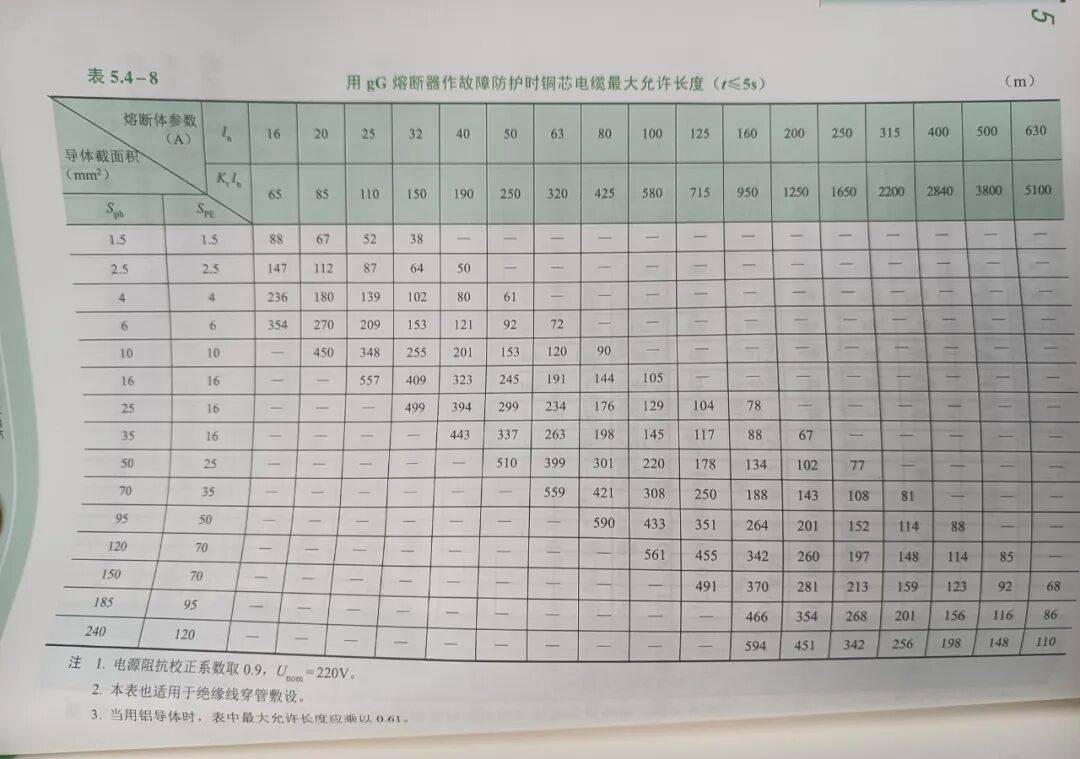 5
表 5.4-8 用 gG 熔断器作故障防护时铜芯电缆最大允许长度（t≤5s） （m）
熔断体参数（A） Iₙ 16 20 25 32 40 50 63 80 100 125 160 200 250 315 400 500 630
导体截面积（mm²） KᵣIₙ 65 85 110 150 190 250 320 425 580 715 950 1250 1650 2200 2840 3800 5100
Sph SPE
1.5 1.5 88 67 52 38 — — — — — — — — — — — — —
2.5 2.5 147 112 87 64 50 — — — — — — — — — — — —
4 4 236 180 139 102 80 61 — — — — — — — — — — —
6 6 354 270 209 153 121 92 72 — — — — — — — — — —
10 10 — 450 348 255 201 153 120 90 — — — — — — — — —
16 16 — — 557 409 323 245 191 144 105 — — — — — — — —
25 16 — — — 499 394 299 234 176 129 104 78 — — — — — —
35 16 — — — — 443 337 263 198 145 117 88 67 — — — — —
50 25 — — — — — 510 399 301 220 178 134 102 77 — — — —
70 35 — — — — — — 559 421 308 250 188 143 108 81 — — —
95 50 — — — — — — — 590 433 351 264 201 152 114 88 — —
120 70 — — — — — — — — 561 455 342 260 197 148 114 85 —
150 70 — — — — — — — — — 491 370 281 213 159 123 92 68
185 95 — — — — — — — — — — 466 354 268 201 156 116 86
240 120 — — — — — — — — — — 594 451 342 256 198 148 110
注 1. 电源阻抗校正系数取 0.9，Unom=220V。
2. 本表也适用于绝缘线穿管敷设。
3. 当用铝导体时，表中最大允许长度应乘以 0.61。